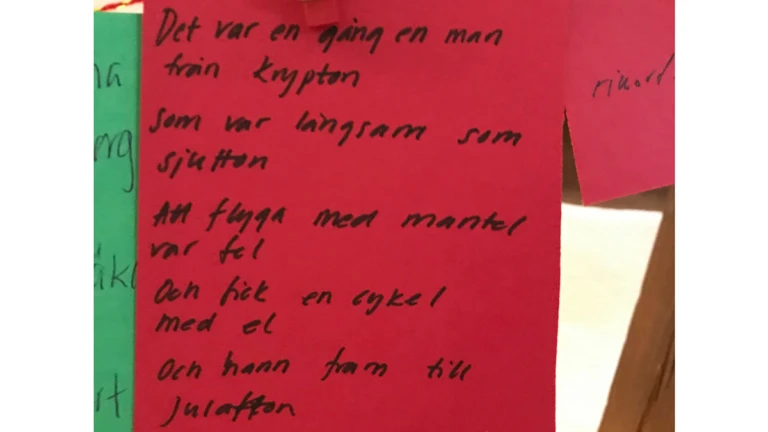 Det var en gång en man
från Krypton
Som var långsam som
sjutton
Att flyga med mantel
var fel
Och fick en cykel
med el
Och hann fram till
julafton